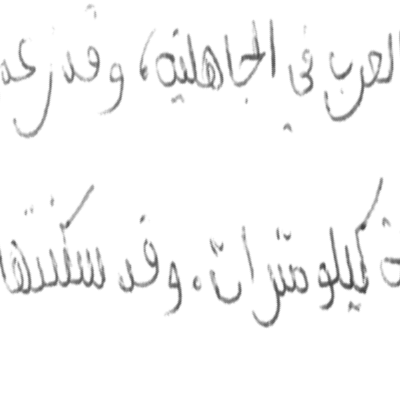 العرب في الجاهلية، وقد زعم
كيلومترات. وقد سكنتها